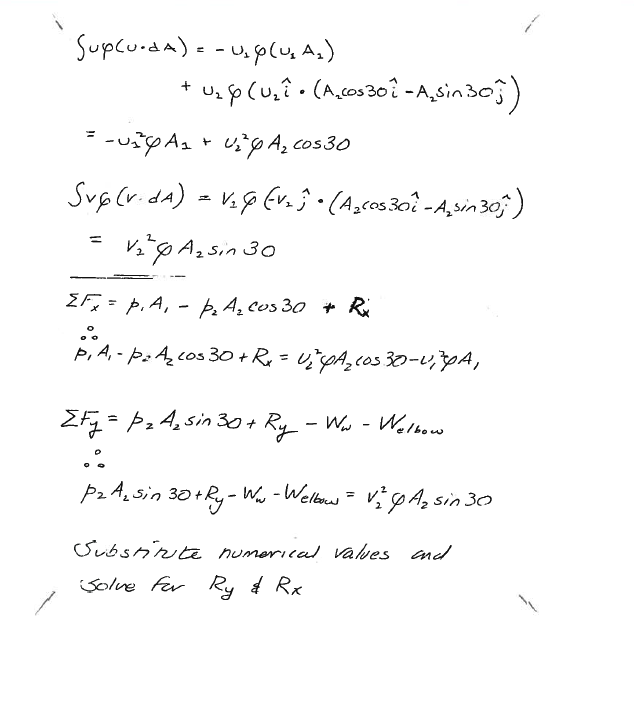 ∫uρ(u·dA) = - u₁ρ(u₁ A₁)
+ u₂ρ(u₂î · (A₂cos30î - A₂sin30ĵ)
= -u₁²ρA₁ + u₂²ρA₂cos30
∫vρ(v·dA) = v₂ρ(-v₂ĵ · (A₂cos30î - A₂sin30ĵ)
= v₂²ρA₂sin30
ΣFx = p₁A₁ - p₂A₂cos30 + Rx
∴
p₁A₁ - p₂A₂cos30 + Rx = u₂²ρA₂cos30 - u₁²ρA₁
ΣFy = p₂A₂sin30 + Ry - Ww - Welbow
∴
p₂A₂sin30 + Ry - Ww - Welbow = v₂²ρA₂sin30
Substitute numerical values and
solve for Ry & Rx